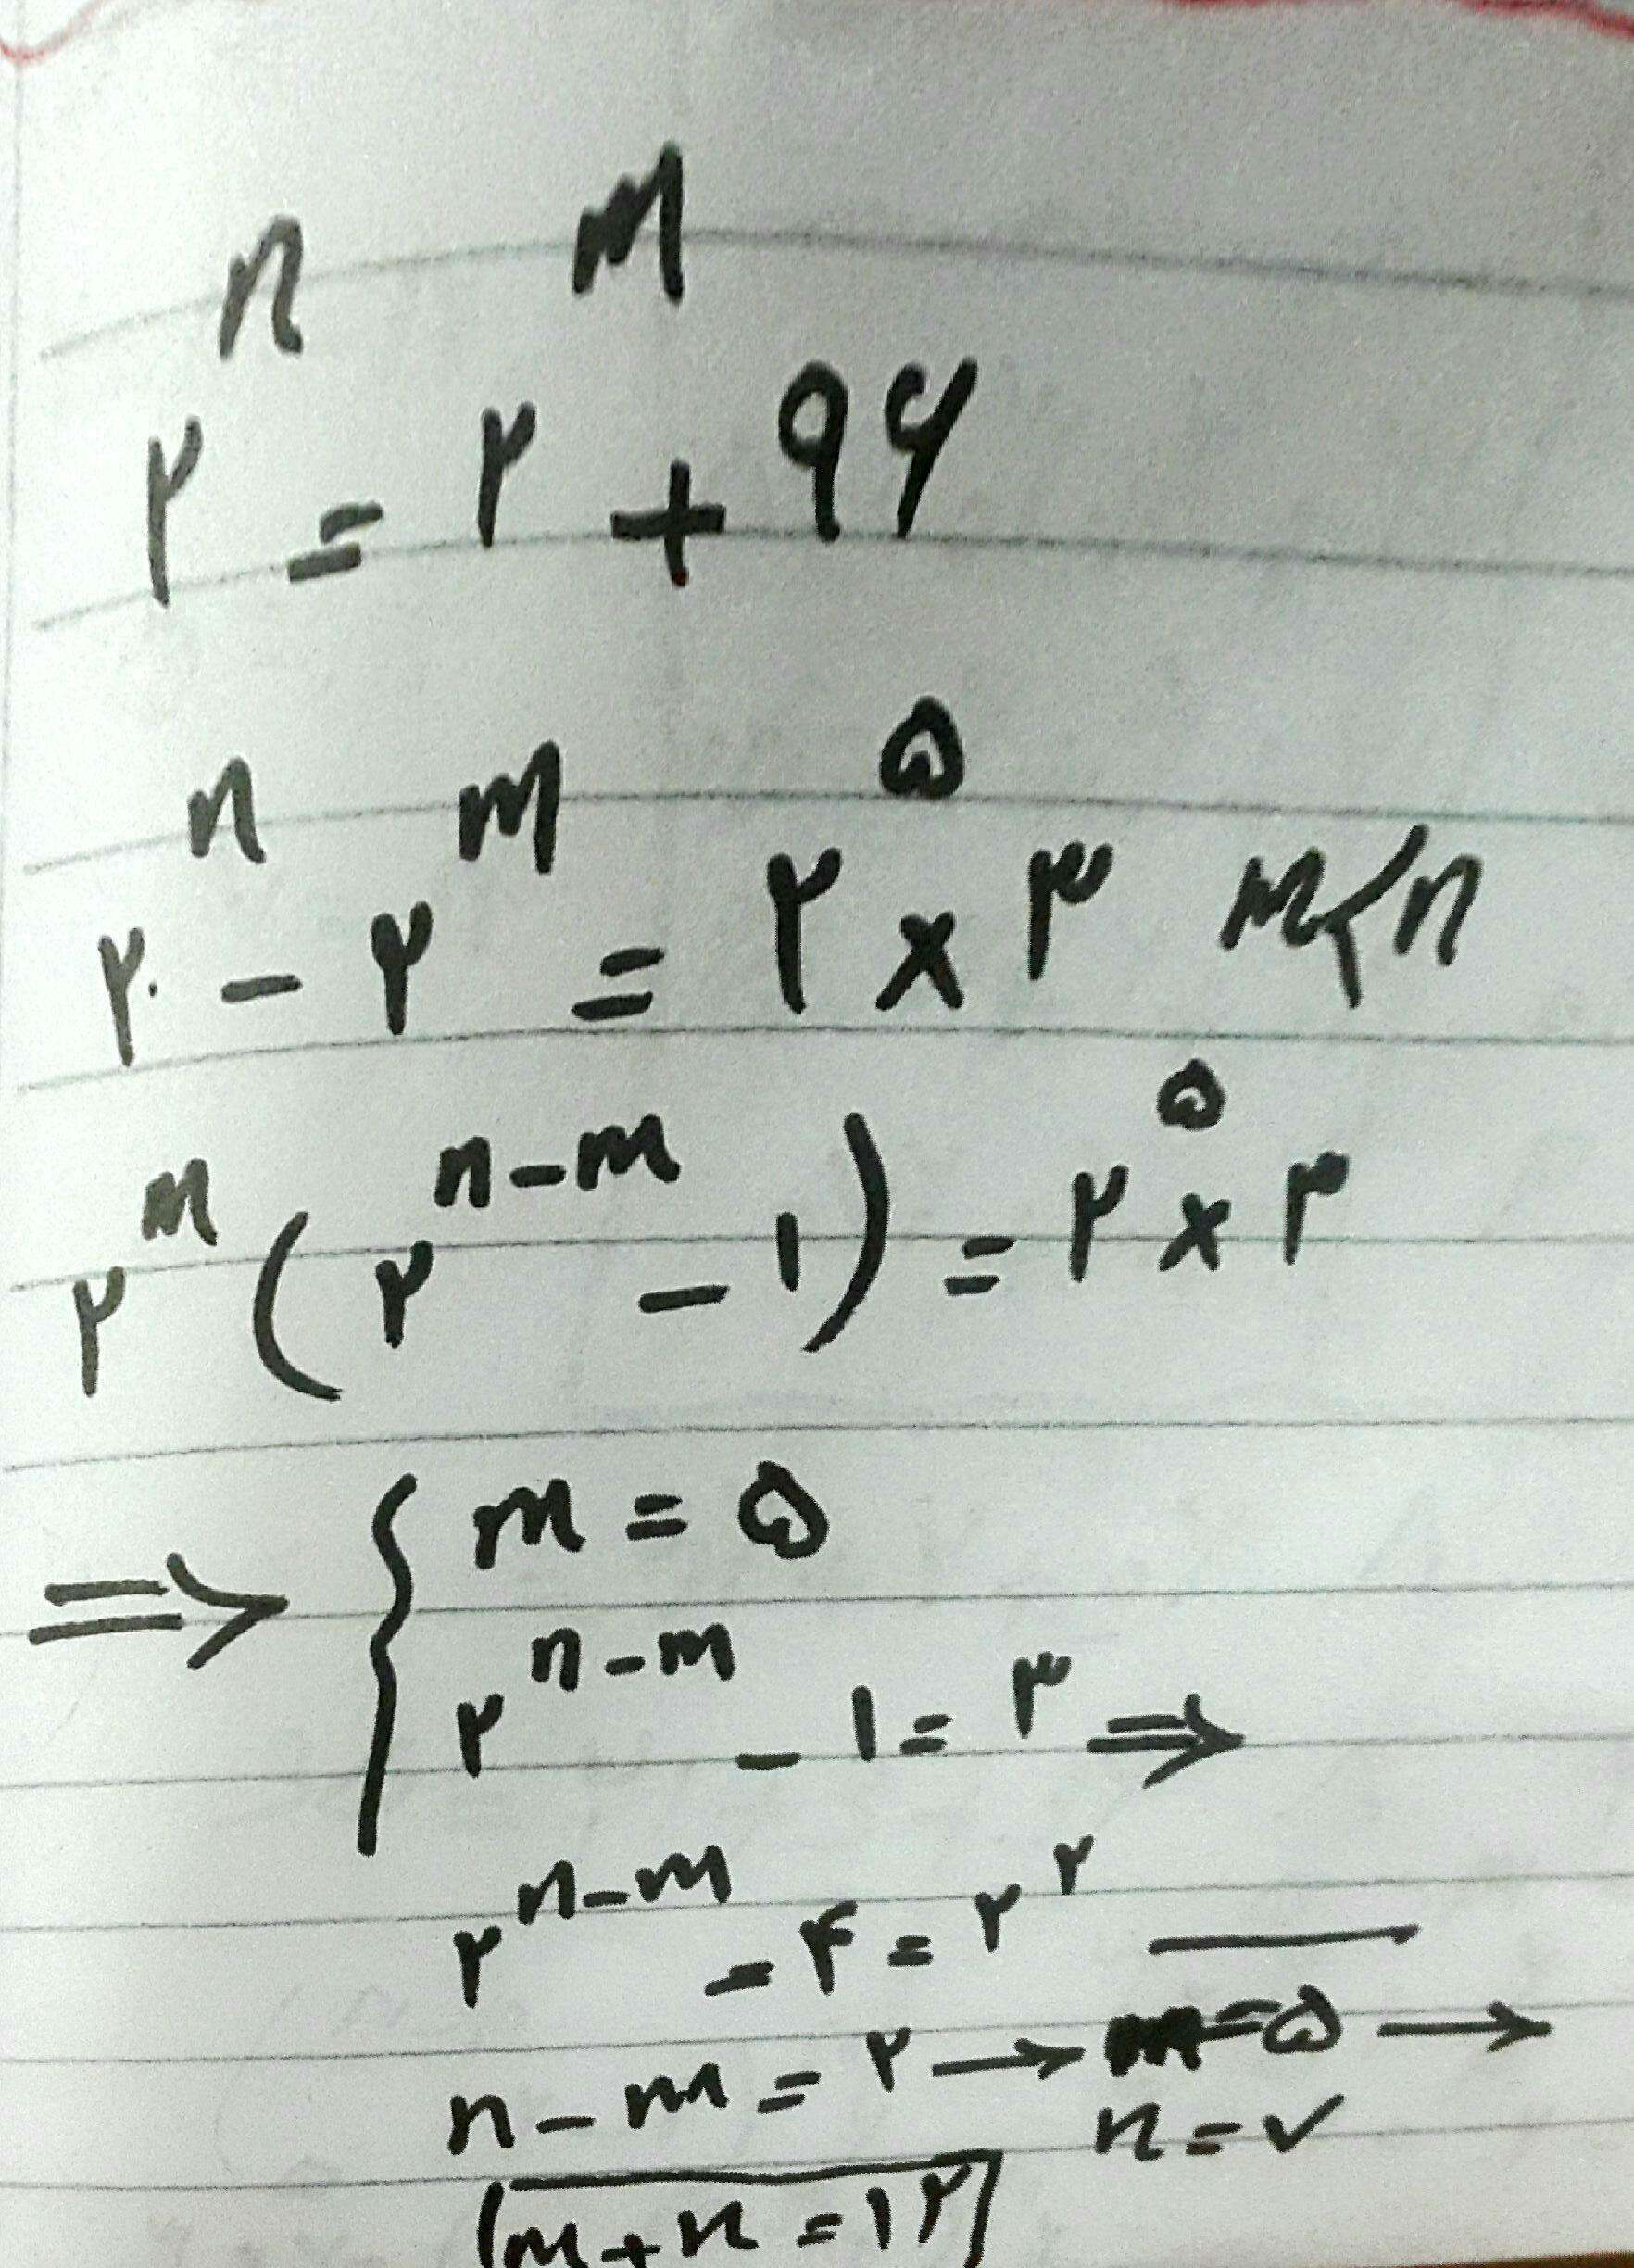 ۲ⁿ = ۲ᵐ + ۹۶
۲ⁿ - ۲ᵐ = ۲⁵ × ۳ m<n
۲ᵐ(۲ⁿ⁻ᵐ - ۱) = ۲⁵ × ۳
⇒ { m = ۵
۲ⁿ⁻ᵐ - ۱ = ۳ ⇒
۲ⁿ⁻ᵐ = ۴ = ۲²
n - m = ۲ → m = ۵ →
n = ۷
m + n = ۱۲